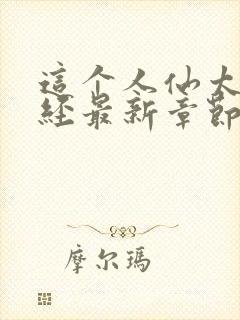 這个人仙太
經最新章節
摩尔瑪